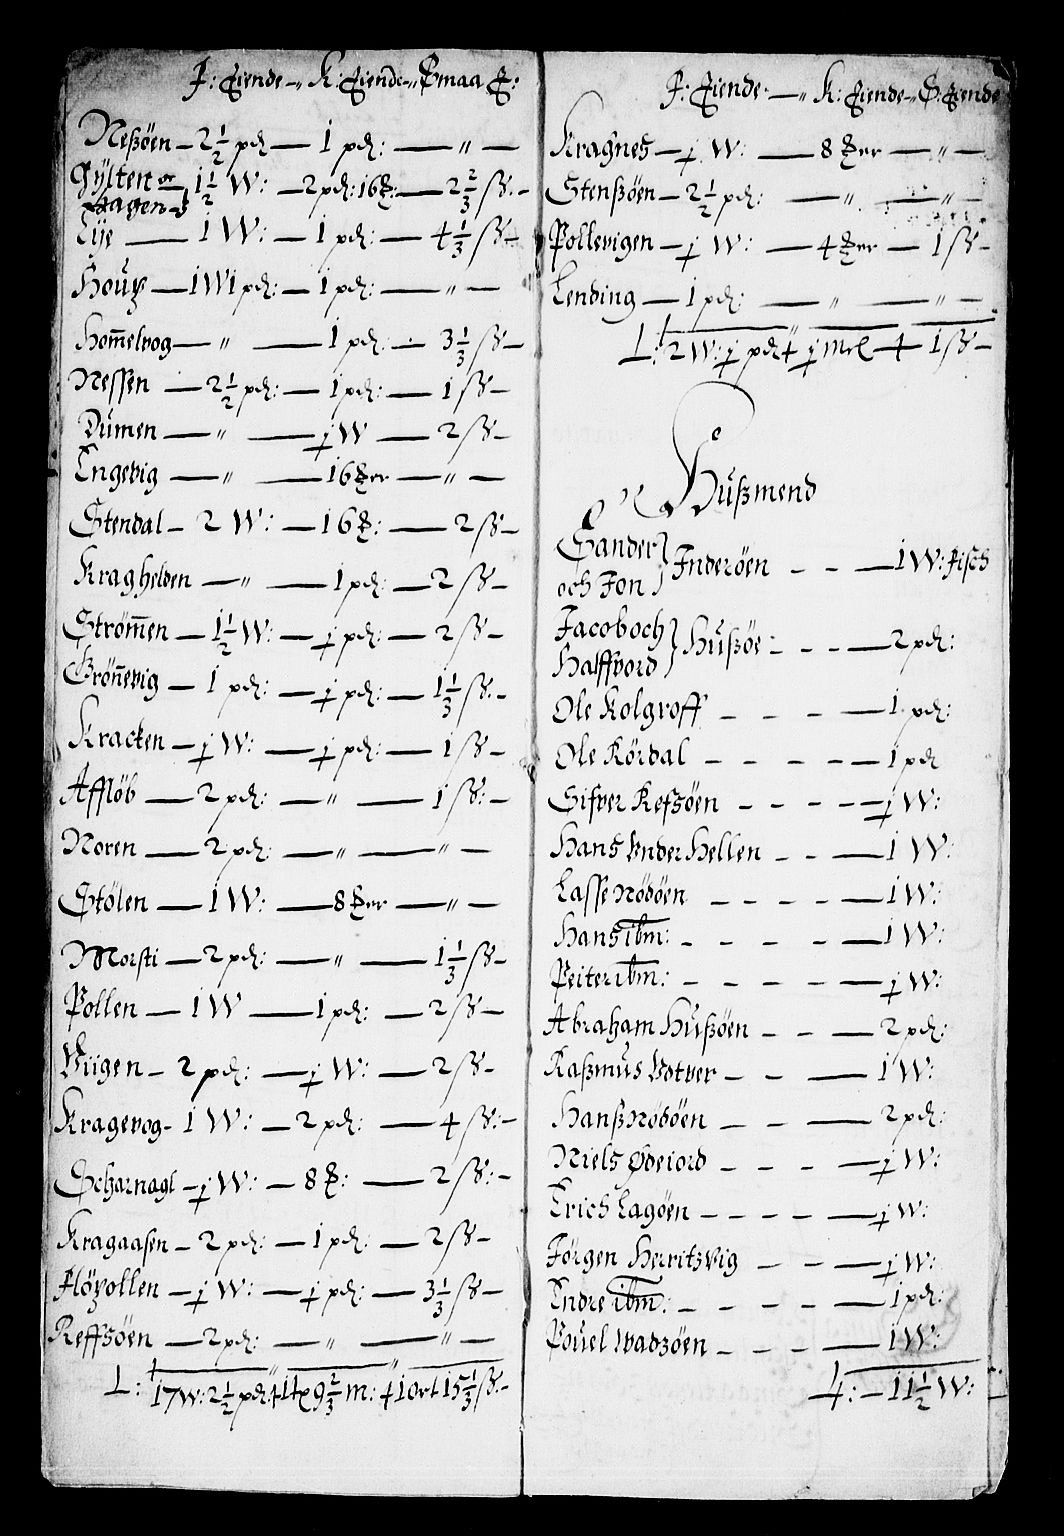 F: Tiende — K: Tiende — Smaa T:
Nessøen — 2 1/2 pd — 1 pd: — " —
Gylten or — 1 1/2 W: — 2 pd: 16 ℔: — 2 2/3 sß: —
Hagen
Lije — 1 W: — 1 pd: — 4 1/3 sß —
Houg — 1 W 1 pd: — 1 pd: — " —
Hom̄elvog — " — 1 pd: — 3 1/3 sß —
Nessen — 2 1/2 pd: — 1 pd: — 1 sß —
Dumen — " — j W — 2 sß —
Engevig — " — 16 ℔er — " —
Stendal — 2 W: — 16 ℔: — 2 sß: —
Kraghelden — " — 1 pd: — 2 sß —
Strøm̄en — 1 1/2 W: — j pd: — 2 sß —
Grøn̄evig — 1 pd: — j pd: — 1 1/3 sß: —
Kracken — j W: — j pd: — 1 sß —
Affløb — 2 pd: — " — 1 sß: —
Noren — 2 pd: — " — " —
Stølen — 1 W: — 8 ℔er — " —
Morsti — 2 pd: — " — 1 1/3 sß —
Pollen — 1 W — 1 pd: — 2 sß —
Viigen — 2 pd: — j W: — 2 sß —
Kragevog — 1 W: — 2 pd: — 4 sß: —
Scharnagl — j W: — 8 ℔: — 2 sß: —
Kragaasen — 2 pd: — 1 pd: — 2 sß —
Fløyollen — j W: — j pd: — 3 1/3 sß —
Reffsøen — 2 pd: — " — " —
L: 17 W: 2 1/2 pd: 9 2/3 m: 1 ort 15 1/3 sß: —
F: Tiende — K: Tiende — S: Tiende
Kragnes — j W: — 8 ℔er — " —
Stensøen — 2 1/2 pd: — " — " —
Pollevigen — j W: — 4 ℔er — 1 sß —
Lending — 1 pd: — " — " —
L: 2 W: j pd j mrl 1 sß —
Hußmend
Sander
och Jon } Inderøen — 1 W: Fisch
Jacob och
Halffvord } Hußøe — 2 pd:
Ole Kolgroff — 1 pd:
Ole Rørdal — 1 pd
Sifver Refsøen — j W:
Hans Under Hellen — 1 W:
Lasse Rødøen — 1 W:
Hans ibm: — 1 W:
Peiter ibm: — j W:
Abraham Hußøen — 2 pd:
Raßmus Votver — 1 W:
Hanß Rødøen — 2 pd:
Niels Ødeiord — j W:
Erich Lagøen — j W:
Jørgen Herritzvig — j W:
Endre ibm: — 1 pd:
Pouel Vadzøen — 1 W:
L: — 11 1/2 W: